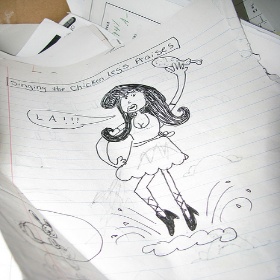 Singing the Chicken Legs Praises
LA!!!